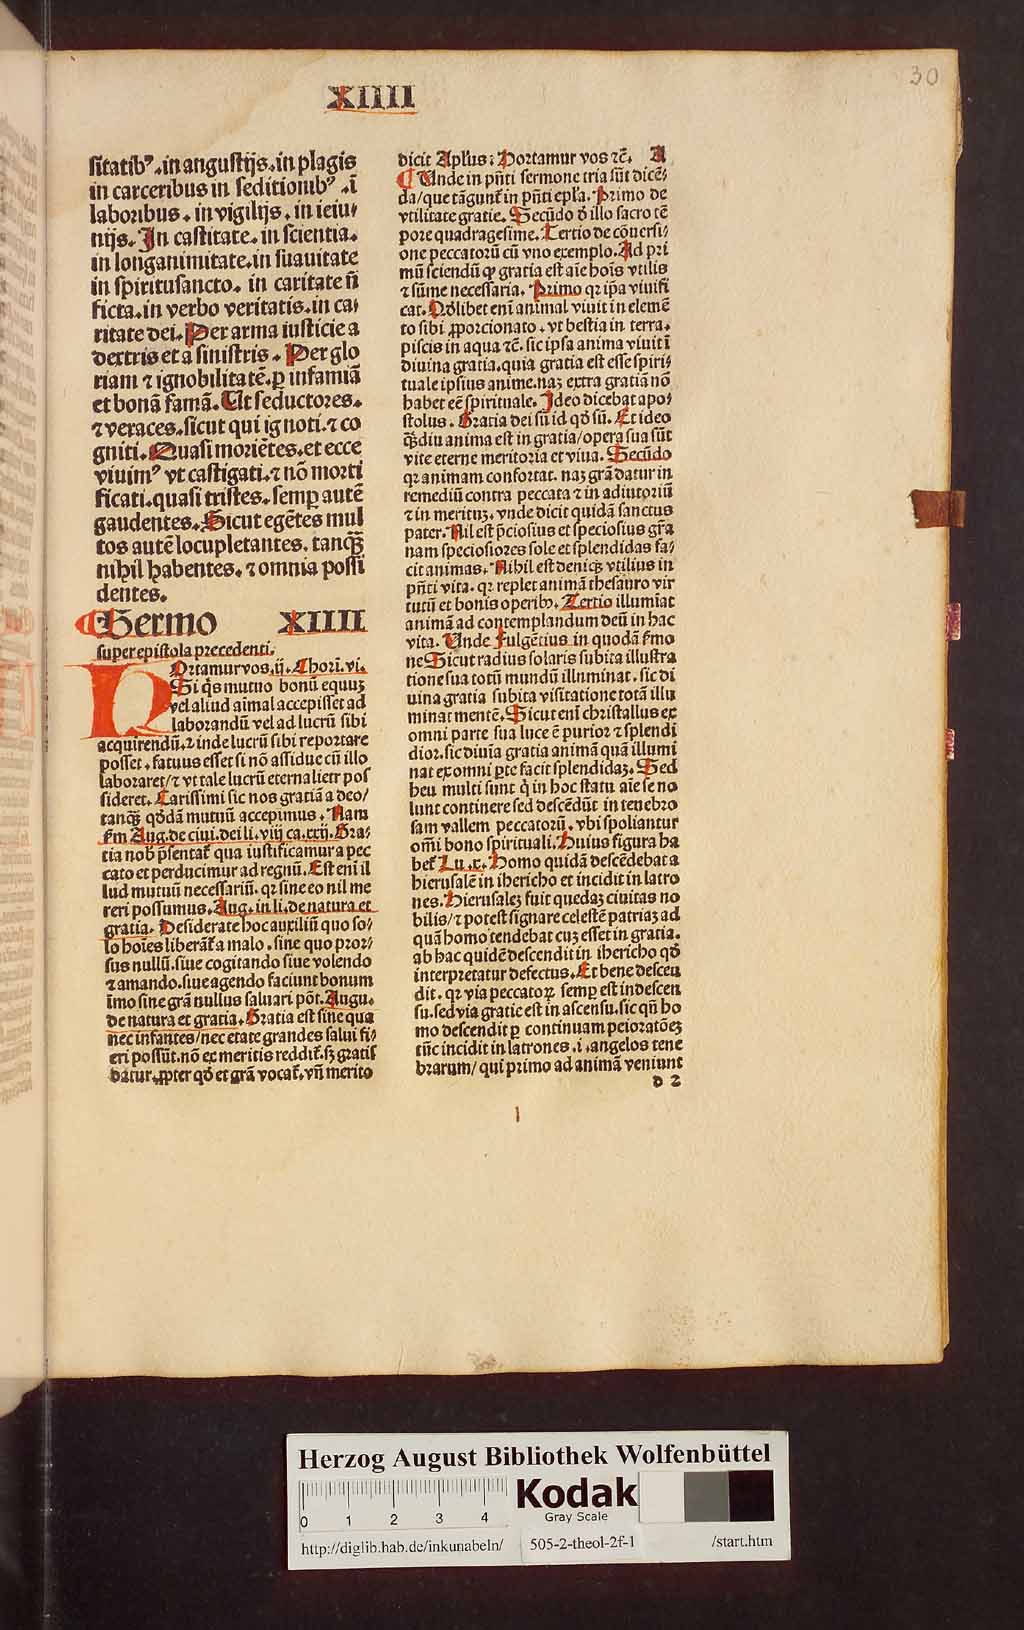 30
XIIII
sitatibꝰ.in angustijs.in plagis
in carceribus in seditionibꝰ.ī
laboribus.in vigilijs.in ieiu⸗
nijs. In castitate.in scientia.
in longanimitate.in suauitate
in spiritusancto.in caritate nō
ficta.in verbo veritatis.in ca⸗
ritate dei. Per arma iusticie a
dextris et a sinistris. Per glo
riam ⁊ ignobilitatē.ꝑ infamiā
et bonā famā. Ut seductores.
⁊ veraces.sicut qui ignoti.⁊ co
gniti. Quasi moriētes.et ecce
viuimꝰ vt castigati.⁊ nō morti
ficati.quasi tristes.semꝑ autē
gaudentes. Sicut egētes mul
tos autē locupletantes.tanqꝫ
nihil habentes.⁊ omnia possi
dentes.
Sermo XIIII
super epistola precedenti.
HOrtamur vos.ij. Chorī.vi.
Si qͥs mutuo bonū equuꝫ
vel aliud aīmal accepisset ad
laborandū vel ad lucrū sibi
acquirendū.⁊ inde lucrū sibi reportare
posset.fatuus esset si nō assidue cū illo
laboraret/⁊ vt tale lucrū eternaliter pos
sideret. Carissimi sic nos gratiā a deo/
tanqꝫ qōdā mutuū accepimus. Nam
ẜm Aug.de ciui.dei li.viij ca.xxij. Gra⸗
tia nob p̄sentat̄ qua iustificamur a pec
cato et perducimur ad regnū. Est enī il
lud mutuū necessariū.qꝛ sine eo nil me
reri possumus. Aug.in li.de natura et
gratia. Desiderate hoc auxiliū quo so⸗
lo hoīes liberāt̄ a malo.sine quo pror⸗
sus nullū.siue cogitando siue volendo
⁊ amando.siue agendo faciunt bonum
īmo sine grā nullus saluari pōt. Augu.
de natura et gratia. Gratia est sine qua
nec infantes/nec etate grandes salui fi⸗
eri possūt.nō ex meritis reddit̄.sꝫ gratis
datur.ꝓpter qō et grā vocat̄.vn̄ merito
dicit Apl̄us: Hortamur vos ⁊c̄. A
Unde in pn̄ti sermone tria sūt dicē⸗
da/que tāgunt̄ in pn̄ti epl̄a. Primo de
vtilitate gratie. Secūdo ō illo sacro tē
pore quadragesime. Tertio de cōuersi⸗
one peccatorū cū vno exemplo. Ad pri
mū sciendū qꝙ gratia est aīe hoīs vtilis
⁊ sūme necessaria. Primo qꝛ ip̄a viuifi
cat. Qōlibet enī animal viuit in elemē
to sibi ꝓporcionato.vt bestia in terra.
piscis in aqua ⁊c̄.sic ipsa anima viuit ī
diuina gratia.quia gratia est esse spiri⸗
tuale ipsius anime.naꝫ extra gratiā nō
habet eē spirituale. Ideo dicebat apo⸗
stolus. Gratia dei sū id qō sū. Et ideo
qꝫdiu anima est in gratia/opera sua sūt
vite eterne meritoria et viua. Secūdo
qꝛ animam confortat.naꝫ grā datur in
remediū contra peccata ⁊ in adiutoriū
⁊ in merituꝫ.vnde dicit quidā sanctus
pater. Nil est p̄ciosius et speciosius gr̄a
nam speciosiores sole et splendidas fa⸗
cit animas. Nihil est deniqꝫ vtilius in
pn̄ti vita.qꝛ replet animā thesauro vir
tutū et bonis operibꝰ. Tertio illumīat
animā ad contemplandum deū in hac
vita. Unde Fulgētius in quodā ẜmo
ne Sicut radius solaris subita illustra
tione sua totū mundū illuminat.sic di
uina gratia subita visitatione totā illu
minat mentē. Sicut enī christallus ex
omni parte sua luce ē purior ⁊ splendi
dior.sic diuīa gratia animā quā illumi
nat ex omni ꝑte facit splendidaꝫ. Sed
heu multi sunt qͥ in hoc statu aīe se no
lunt continere sed descēdūt in tenebro
sam vallem peccatorū.vbi spoliantur
om̄i bono spirituali. Huius figura ha
bet̄ Lu.x. Homo quidā descēdebat a
hierusalē in ihericho et incidit in latro
nes. Hierusaleꝫ fuit quedaꝫ ciuitas no
bilis/⁊ potest signare celestē patriaꝫ ad
quā homo tendebat cuꝫ esset in gratia.
ab hac quidē descendit in ihericho qō
interpretatur defectus. Et bene descen
dit.qꝛ via peccatorꝝ semꝑ est in descen
su.sed via gratie est in ascensu.sic qn̄ ho
mo descendit ꝑ continuam peioratōeꝫ
tūc incidit in latrones.i.angelos tene
brarum/qui primo ad animā veniunt
d 2
Herzog August Bibliothek Wolfenbüttel
0 1 2 3 4
Kodak
Gray Scale
http://diglib.hab.de/inkunabeln/ 505-2-theol-2f-1 /start.htm